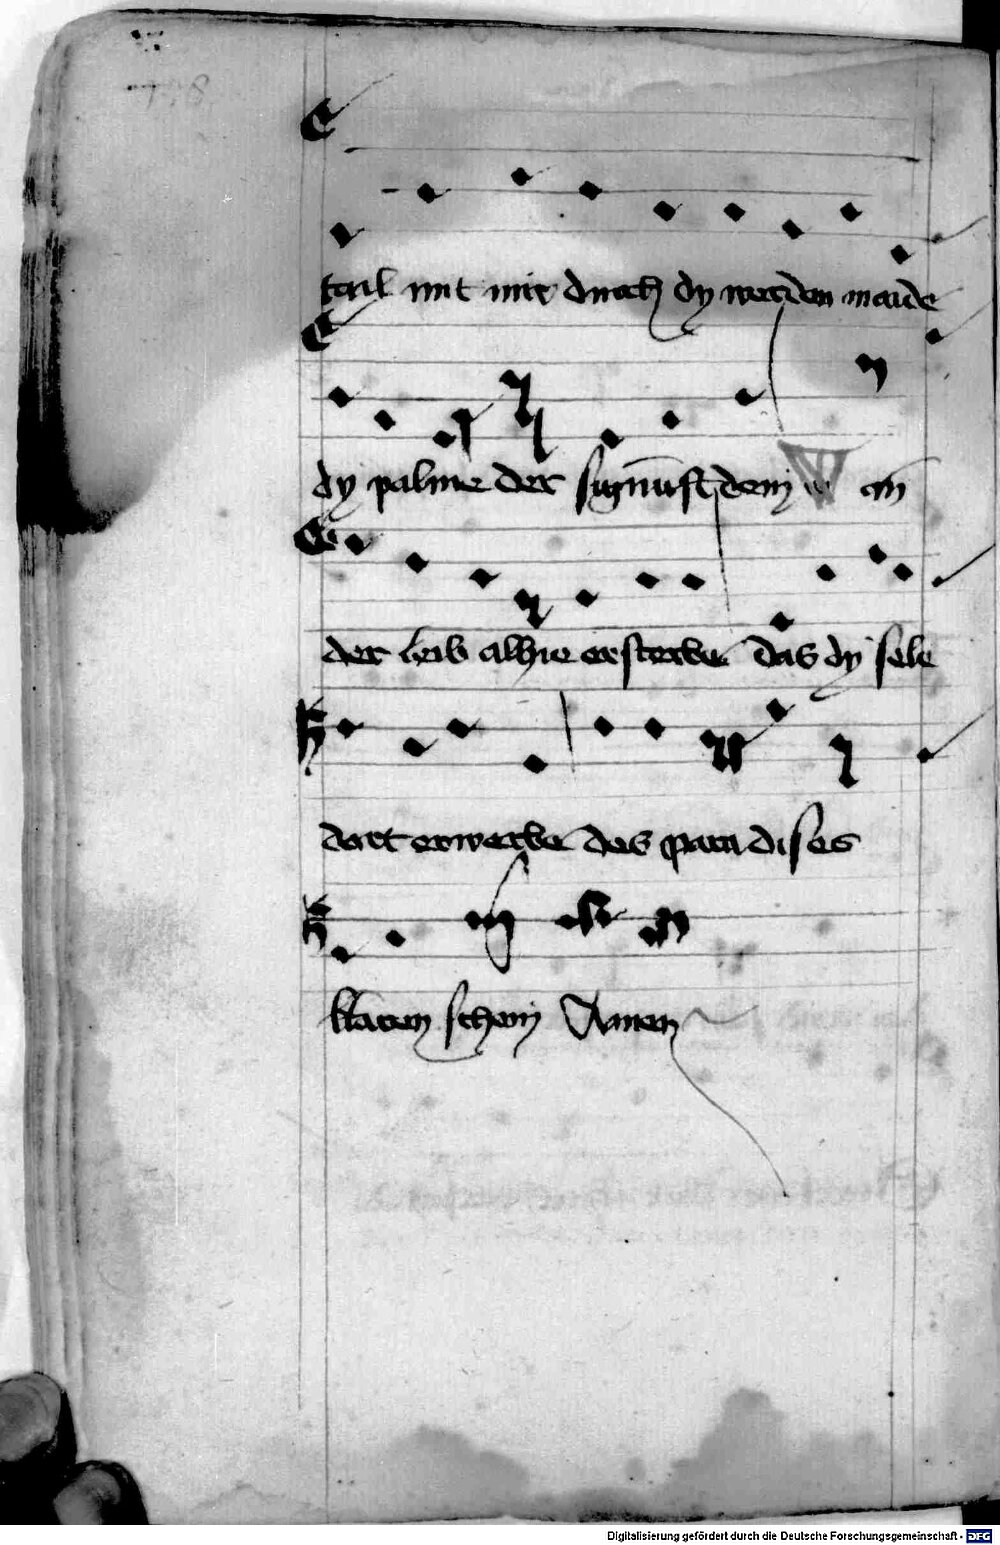 tail mit mir durch dy werden maide
dy palme der signuft dem W an
der leib alhie ersterbe das dy sele
dort erwerbe des paradises
klaren schein Amen
Digitalisierung gefördert durch die Deutsche Forschungsgemeinschaft - DFG